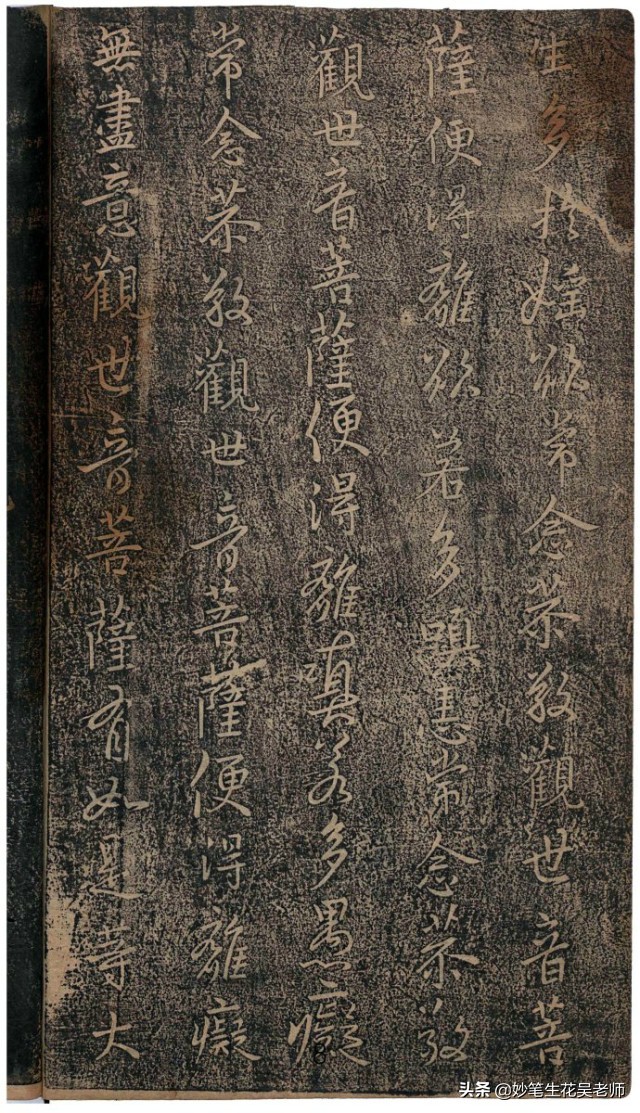 生多於婬欲常念恭敬觀世音菩
薩便得離欲若多瞋恚常念恭敬
觀世音菩薩便得離瞋若多愚癡
常念恭敬觀世音菩薩便得離癡
無盡意觀世音菩薩有如是等大
头条 @妙笔生花吴老师